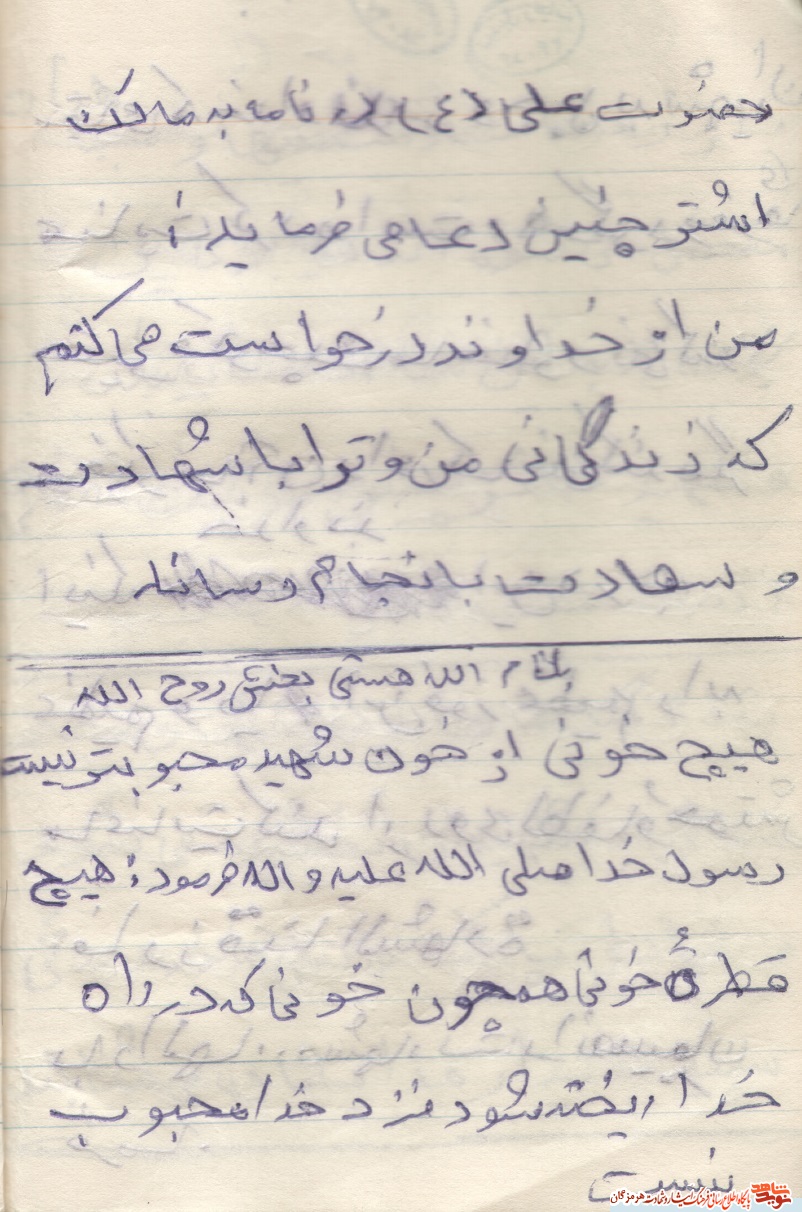 حضرت علی (ع) در نامه به مالک
اشتر چنین دعا می فرماید:
من از خداوند درخواست می کنم
که زندگانی من و تو را با شهادت
و سعادت بانجام رساند
بنام الله هستی بخش روح الله
هیچ خونی از خون شهید محبوبتر نیست
رسول خدا صلی الله علیه و اله فرمود: هیچ
قطرهٔ خونی همچون خونی که در راه
خدا ریخته شود نزد خدا محبوب
نیست
نوید شاهد
پایگاه اطلاع رسانی فرهنگ ایثار و شهادت هرمزگان